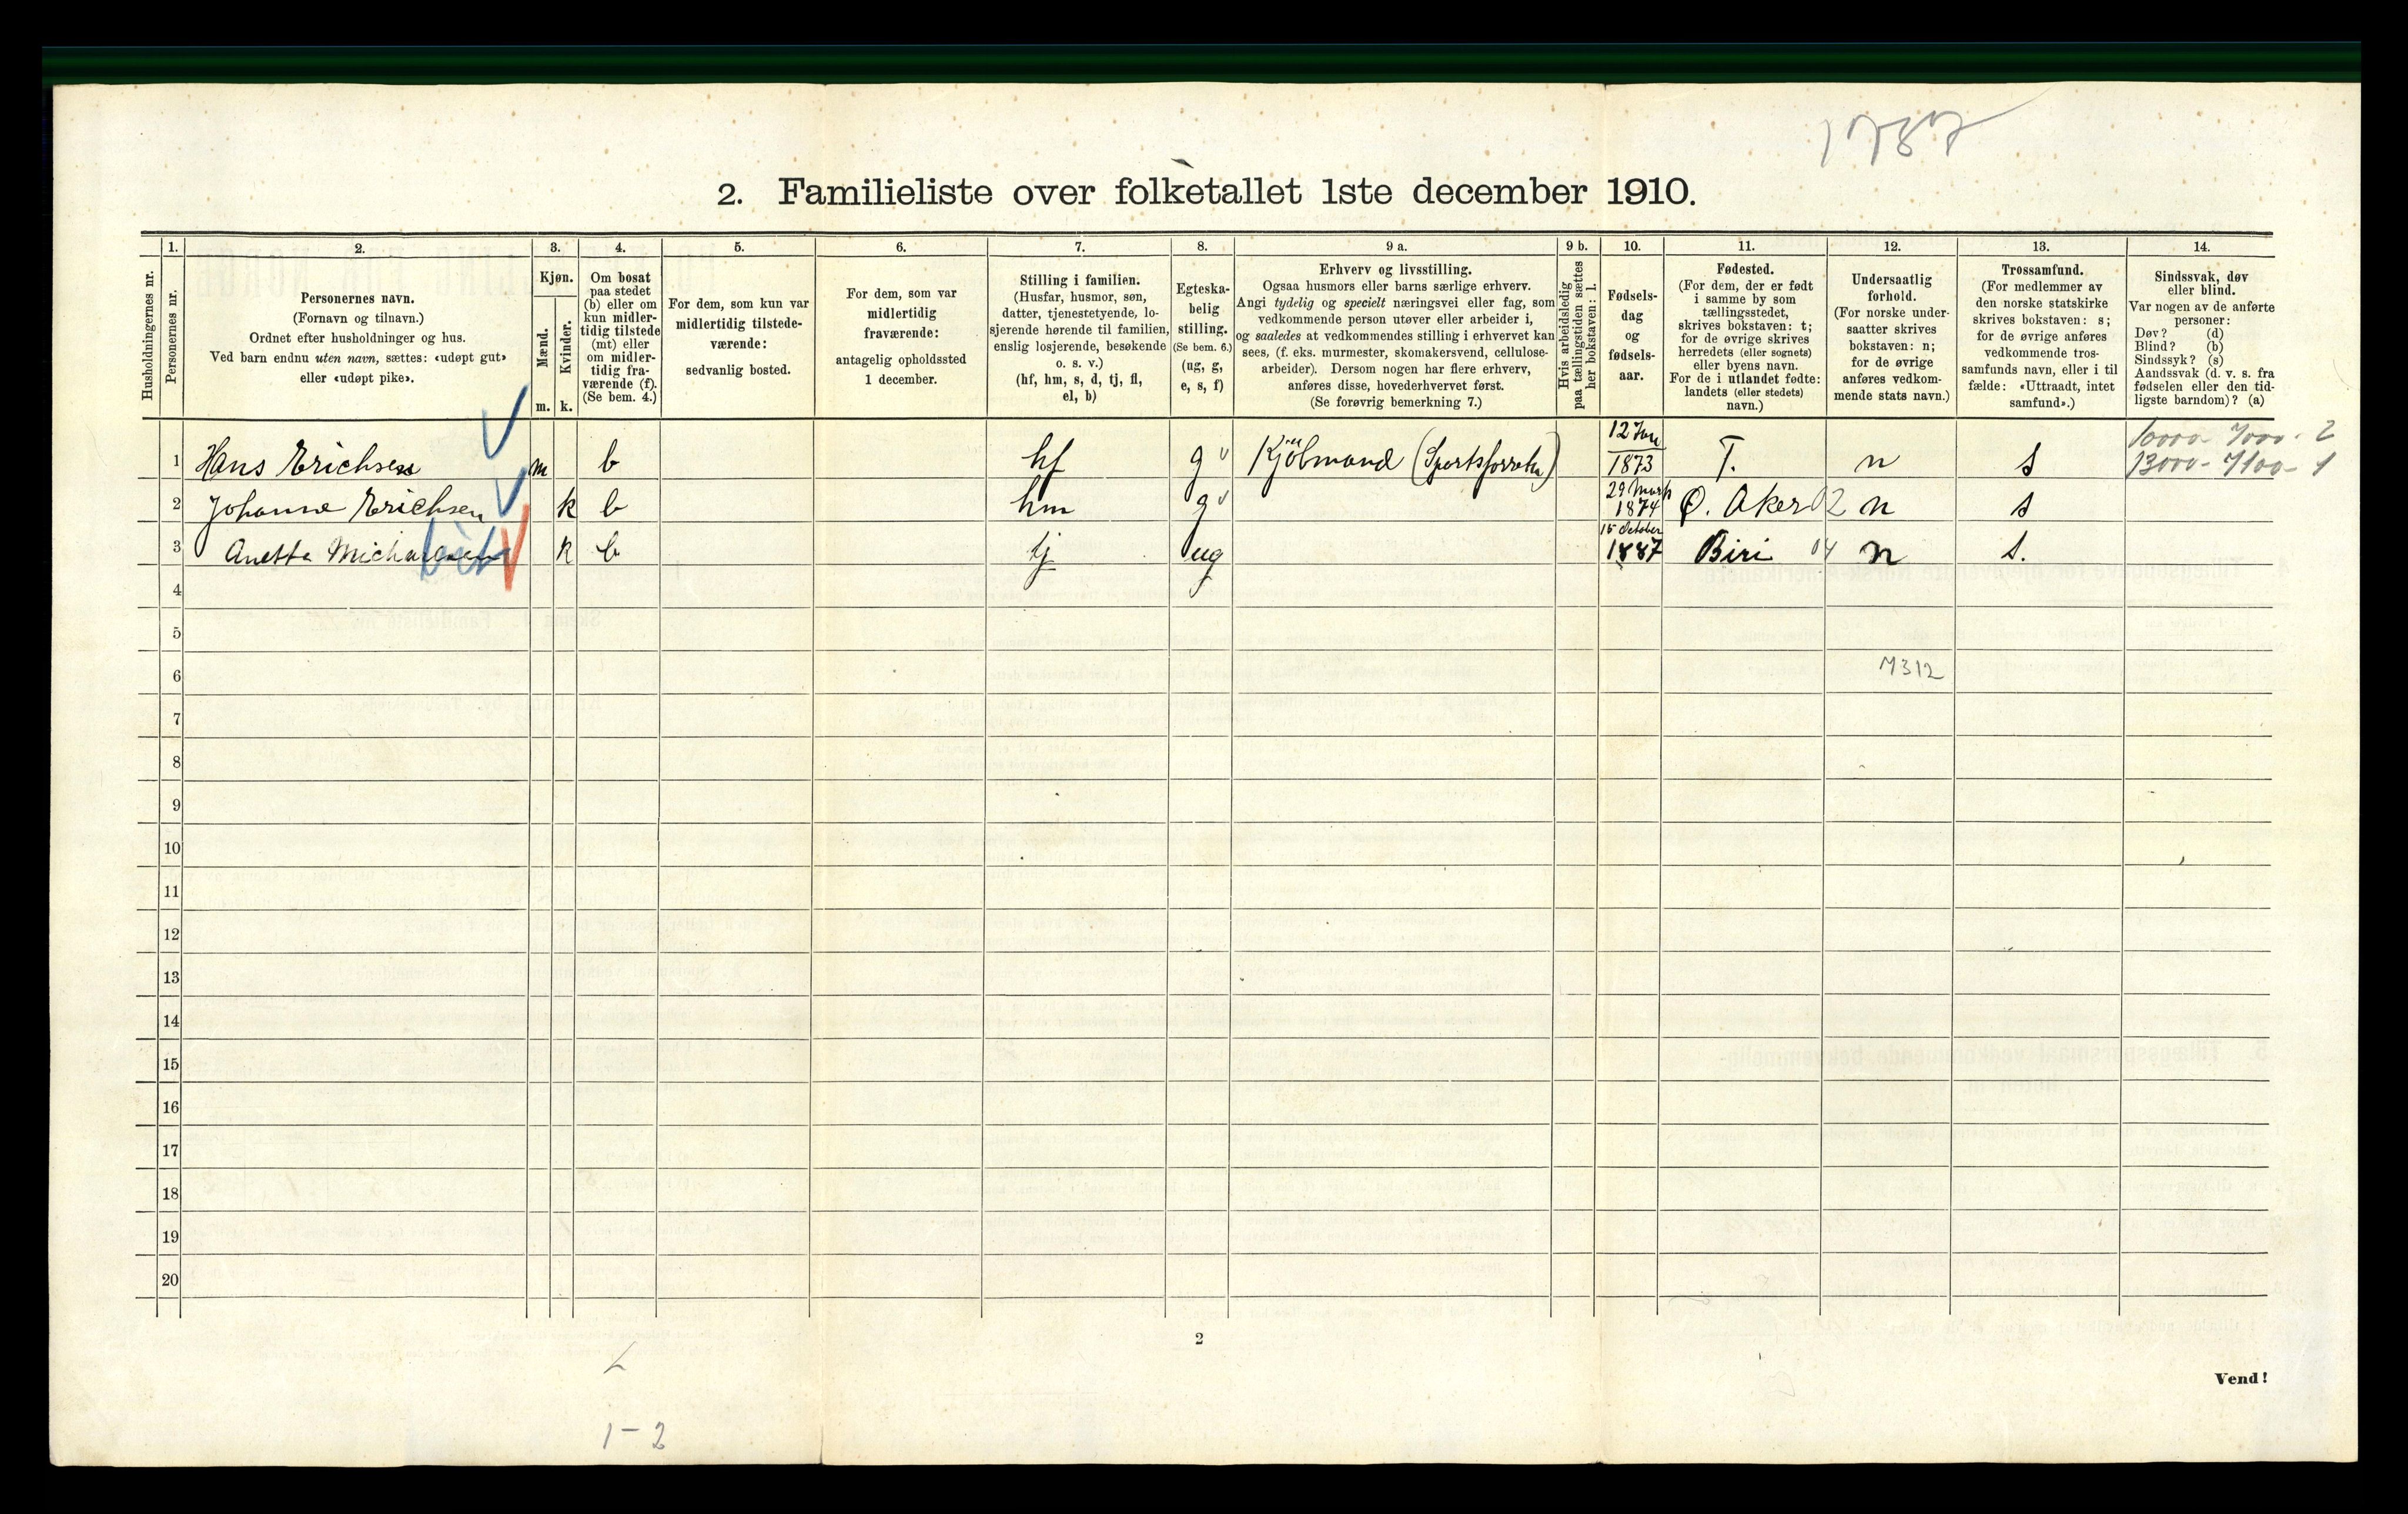 1787
2. Familieliste over folketallet 1ste december 1910.
Husholdningernes nr.
1.
Personernes nr.
2.
Personernes navn.
(Fornavn og tilnavn.)
Ordnet efter husholdninger og hus.
Ved barn endnu uten navn, sættes: «udøpt gut»
eller «udøpt pike».
3.
Kjøn.
Mænd.
Kvinder.
m. k.
4.
Om bosat
paa stedet
(b) eller om
kun midler-
tidig tilstede
(mt) eller
om midler-
tidig fra-
værende (f).
(Se bem. 4.)
5.
For dem, som kun var
midlertidig tilstede-
værende:
sedvanlig bosted.
6.
For dem, som var
midlertidig
fraværende:
antagelig opholdssted
1 december.
7.
Stilling i familien.
(Husfar, husmor, søn,
datter, tjenestetyende, lo-
sjerende hørende til familien,
enslig losjerende, besøkende
o. s. v.)
(hf, hm, s, d, tj, fl,
el, b)
8.
Egteska-
belig
stilling.
(Se bem. 6.)
(ug, g,
e, s, f)
9 a.
Erhverv og livsstilling.
Ogsaa husmors eller barns særlige erhverv.
Angi tydelig og specielt næringsvei eller fag, som
vedkommende person utøver eller arbeider i,
og saaledes at vedkommendes stilling i erhvervet kan
sees, (f. eks. murmester, skomakersvend, cellulose-
arbeider). Dersom nogen har flere erhverv,
anføres disse, hovederhvervet først.
(Se forøvrig bemerkning 7.)
9 b.
Hvis arbeidsledig
paa tællingstiden sættes
her bokstaven: l.
10.
Fødsels-
dag
og
fødsels-
aar.
11.
Fødested.
(For dem, der er født
i samme by som
tællingsstedet,
skrives bokstaven: t;
for de øvrige skrives
herredets (eller sognets)
eller byens navn.
For de i utlandet fødte:
landets (eller stedets)
navn.)
12.
Undersaatlig
forhold.
(For norske under-
saatter skrives
bokstaven: n;
for de øvrige
anføres vedkom-
mende stats navn.)
13.
Trossamfund.
(For medlemmer av
den norske statskirke
skrives bokstaven: s;
for de øvrige anføres
vedkommende tros-
samfunds navn, eller i til
fælde: «Uttraadt, intet
samfund».)
14.
Sindssvak, døv
eller blind.
Var nogen av de anførte
personer:
Døv? (d)
Blind? (b)
Sindssyk? (s)
Aandssvak (d. v. s. fra
fødselen eller den tid-
ligste barndom)? (a)
1 Hans Erichsen m b hf g Kjöbmand 12 Jan 1873 T. n s 10000 - 7000 - 2
13000 - 7100 - 1
2 Johanne Erichsen k b hm g 29 Marts 1874 Ø. Aker 02 n s
3 Anetta Michaelsen k b tj ug 15 October 1887 Biri 04 n s.
4
5
6 7312
7
8
9
10
11
12
13
14
15
16
17
18
19
20
2
Vend!
1-2